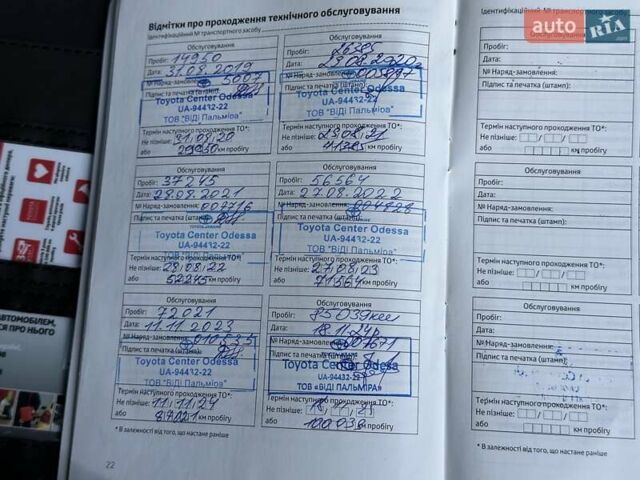 Відмітки про проходження технічного обслуговування
Ідентифікаційний № транспортного засобу
Обслуговування
Пробіг: 14950
Дата: 31.08.2019
№ Наряд-замовлення: 5007
Підпис та печатка (штамп):
Toyota Center Odessa
UA-94432-22
ТОВ "ВІДІ Пальміра"
Термін наступного проходження ТО*:
Не пізніше: 31.08.20
або 29950 км пробігу
Обслуговування
Пробіг: 26385
Дата: 29.08.2020
№ Наряд-замовлення:
Підпис та печатка (штамп):
Toyota Center Odessa
UA-94432-22
ТОВ "ВІДІ Пальміра"
Термін наступного проходження ТО*:
Не пізніше: 29.08.21
або 41385 км пробігу
Обслуговування
Пробіг: 37245
Дата: 28.08.2021
№ Наряд-замовлення: 002716
Підпис та печатка (штамп):
Toyota Center Odessa
UA-94432-22
Термін наступного проходження ТО*:
Не пізніше: 28.08.22
або 52245 км пробігу
Обслуговування
Пробіг: 56564
Дата: 27.08.2022
№ Наряд-замовлення:
Підпис та печатка (штамп):
Toyota Center Odessa
UA-94432-22
ТОВ "ВІДІ Пальміра"
Термін наступного проходження ТО*:
Не пізніше: 27.08.23
або 71564 км пробігу
Обслуговування
Пробіг: 72021
Дата: 11.11.2023
№ Наряд-замовлення:
Підпис та печатка (штамп):
Toyota Center Odessa
UA-94432-22
ТОВ "ВІДІ Пальміра"
Термін наступного проходження ТО*:
Не пізніше: 11.11.24
або 87021 км пробігу
Обслуговування
Пробіг: 85039 км
Дата: 18.11.24р
№ Наряд-замовлення:
Підпис та печатка (штамп):
Toyota Center Odessa
UA-94432-22
ТОВ «ВІДІ ПАЛЬМІРА»
Термін наступного проходження ТО*:
Не пізніше: 18.11.25
або 100039 км пробігу
* В залежності від того, що настане раніше
22
Ідентифікаційний № транспортного засобу
Обслуговування
Пробіг:
Дата:
№ Наряд-замовлення:
Підпис та печатка (штамп):
Термін наступного проходження ТО*:
Не пізніше:
або км пробігу
Обслуговування
Пробіг:
Дата:
№ Наряд-замовлення:
Підпис та печатка (штамп):
Термін наступного проходження ТО*:
Не пізніше:
або км пробігу
Обслуговування
Пробіг:
Дата:
№ Наряд-замовлення:
Підпис та печатка (штамп):
Термін наступного проходження ТО*:
Не пізніше:
або км пробігу
* В залежності від того, що настане раніше
auto RIA
АВТОМОБІЛЕМ,
СЯ ПРО НЬОГО